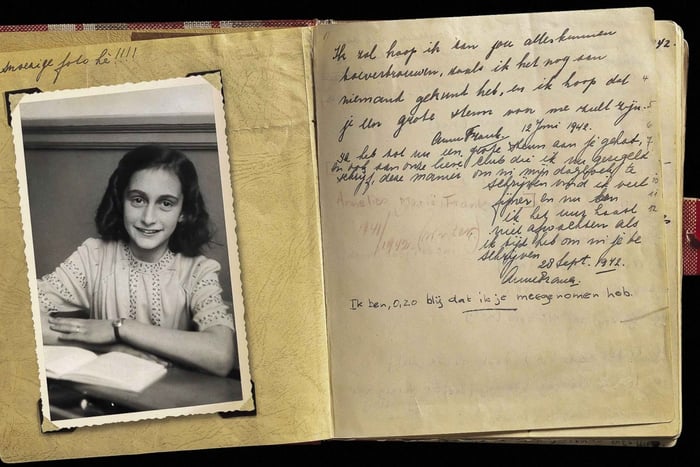 snoezige foto hè !!!!
42.
Ik zal hoop ik aan jou alles kunnen
toevertrouwen, zoals ik het nog aan
niemand gekund heb, en ik hoop dat
je een grote steun voor me zult zijn.
Anne Frank. 12 Juni 1942.
Ik heb tot nu een grote steun aan je gehad,
en ook aan onze lieve club die ik nu geregeld
schrijf, deze manier om in mijn dagboek te
schrijven vind ik veel
fijner en nu kan
Annelies Marie Frank
ik het uur haast
niet afwachten als
1941/
1942
ik tijd heb om in je te
schrijven
28 Sept. 1942.
Anne Frank.
Ik ben, O, zo blij dat ik je meegenomen heb.